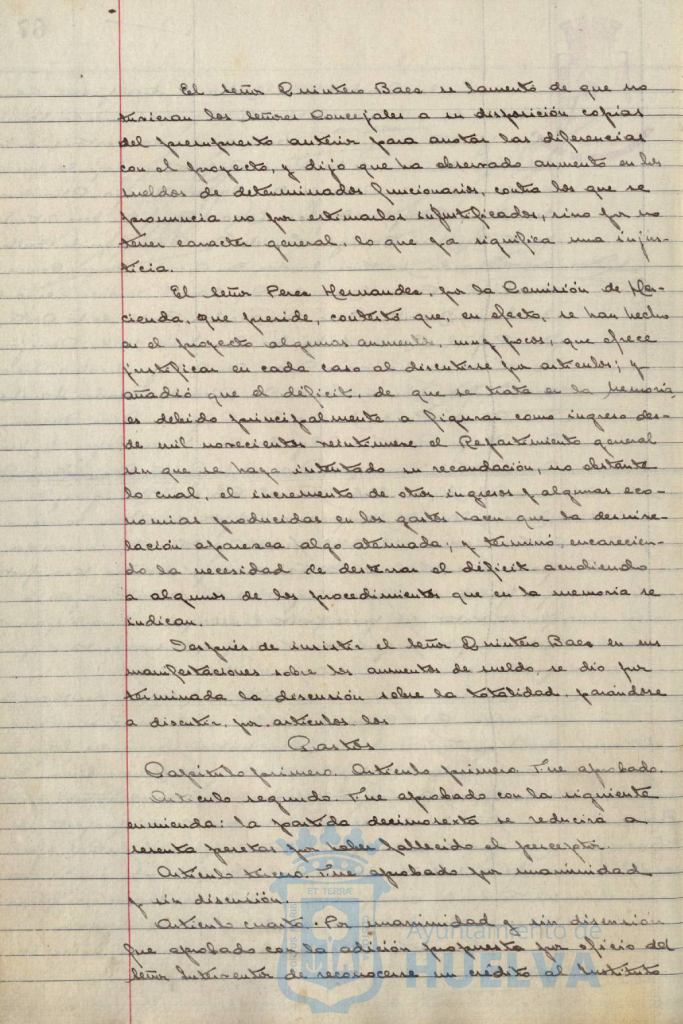 El Señor Quintero Baez se lamentó de que no
tuvieran los Señores Concejales a su disposición copias
del presupuesto anterior para anotar las diferencias
con el proyecto, y dijo que ha observado aumento en los
sueldos de determinados funcionarios, contra los que se
pronuncia no por estimarlos injustificados, sino por no
tener caracter general, lo que ya significa una injus-
ticia.
El Señor Perez Hernandez, por la Comisión de Ha-
cienda, que preside, contestó que, en efecto, se han hecho
en el proyecto algunos aumentos, muy pocos, que ofrece
justificar en cada caso al discutirse por articulos; y
añadió que el déficit, de que se trata en la Memoria,
es debido principalmente a figurar como ingreso des-
de mil novecientos veintinueve el Repartimiento general
sin que se haya intentado su recaudación, no obstante
lo cual, el incremento de otros ingresos y algunas eco-
nomias producidas en los gastos hacen que la desnive-
lación aparezca algo atenuada; y terminó, encarecien-
do la necesidad de desterrar el déficit acudiendo
a algunos de los procedimientos que en la memoria se
indican.
Después de insistir el Señor Quintero Baez en sus
manifestaciones sobre los aumentos de sueldo, se dió por
terminada la discusión sobre la totalidad, pasándose
a discutir, por articulos, los
Gastos
Capitulo primero. Articulo primero. Fue aprobado.
Articulo segundo. Fue aprobado con la siguiente
enmienda: la partida decimosexta se reducirá a
sesenta pesetas por haber fallecido el perceptor.
Articulo tercero. Fue aprobado por unanimidad
y sin discusión.
Articulo cuarto. Por unanimidad y sin discusión
fue aprobado con la adición propuesta por oficio del
Señor Interventor de reconocerse un crédito al Instituto
ET TERRÆ
Ayuntamiento de
HUELVA